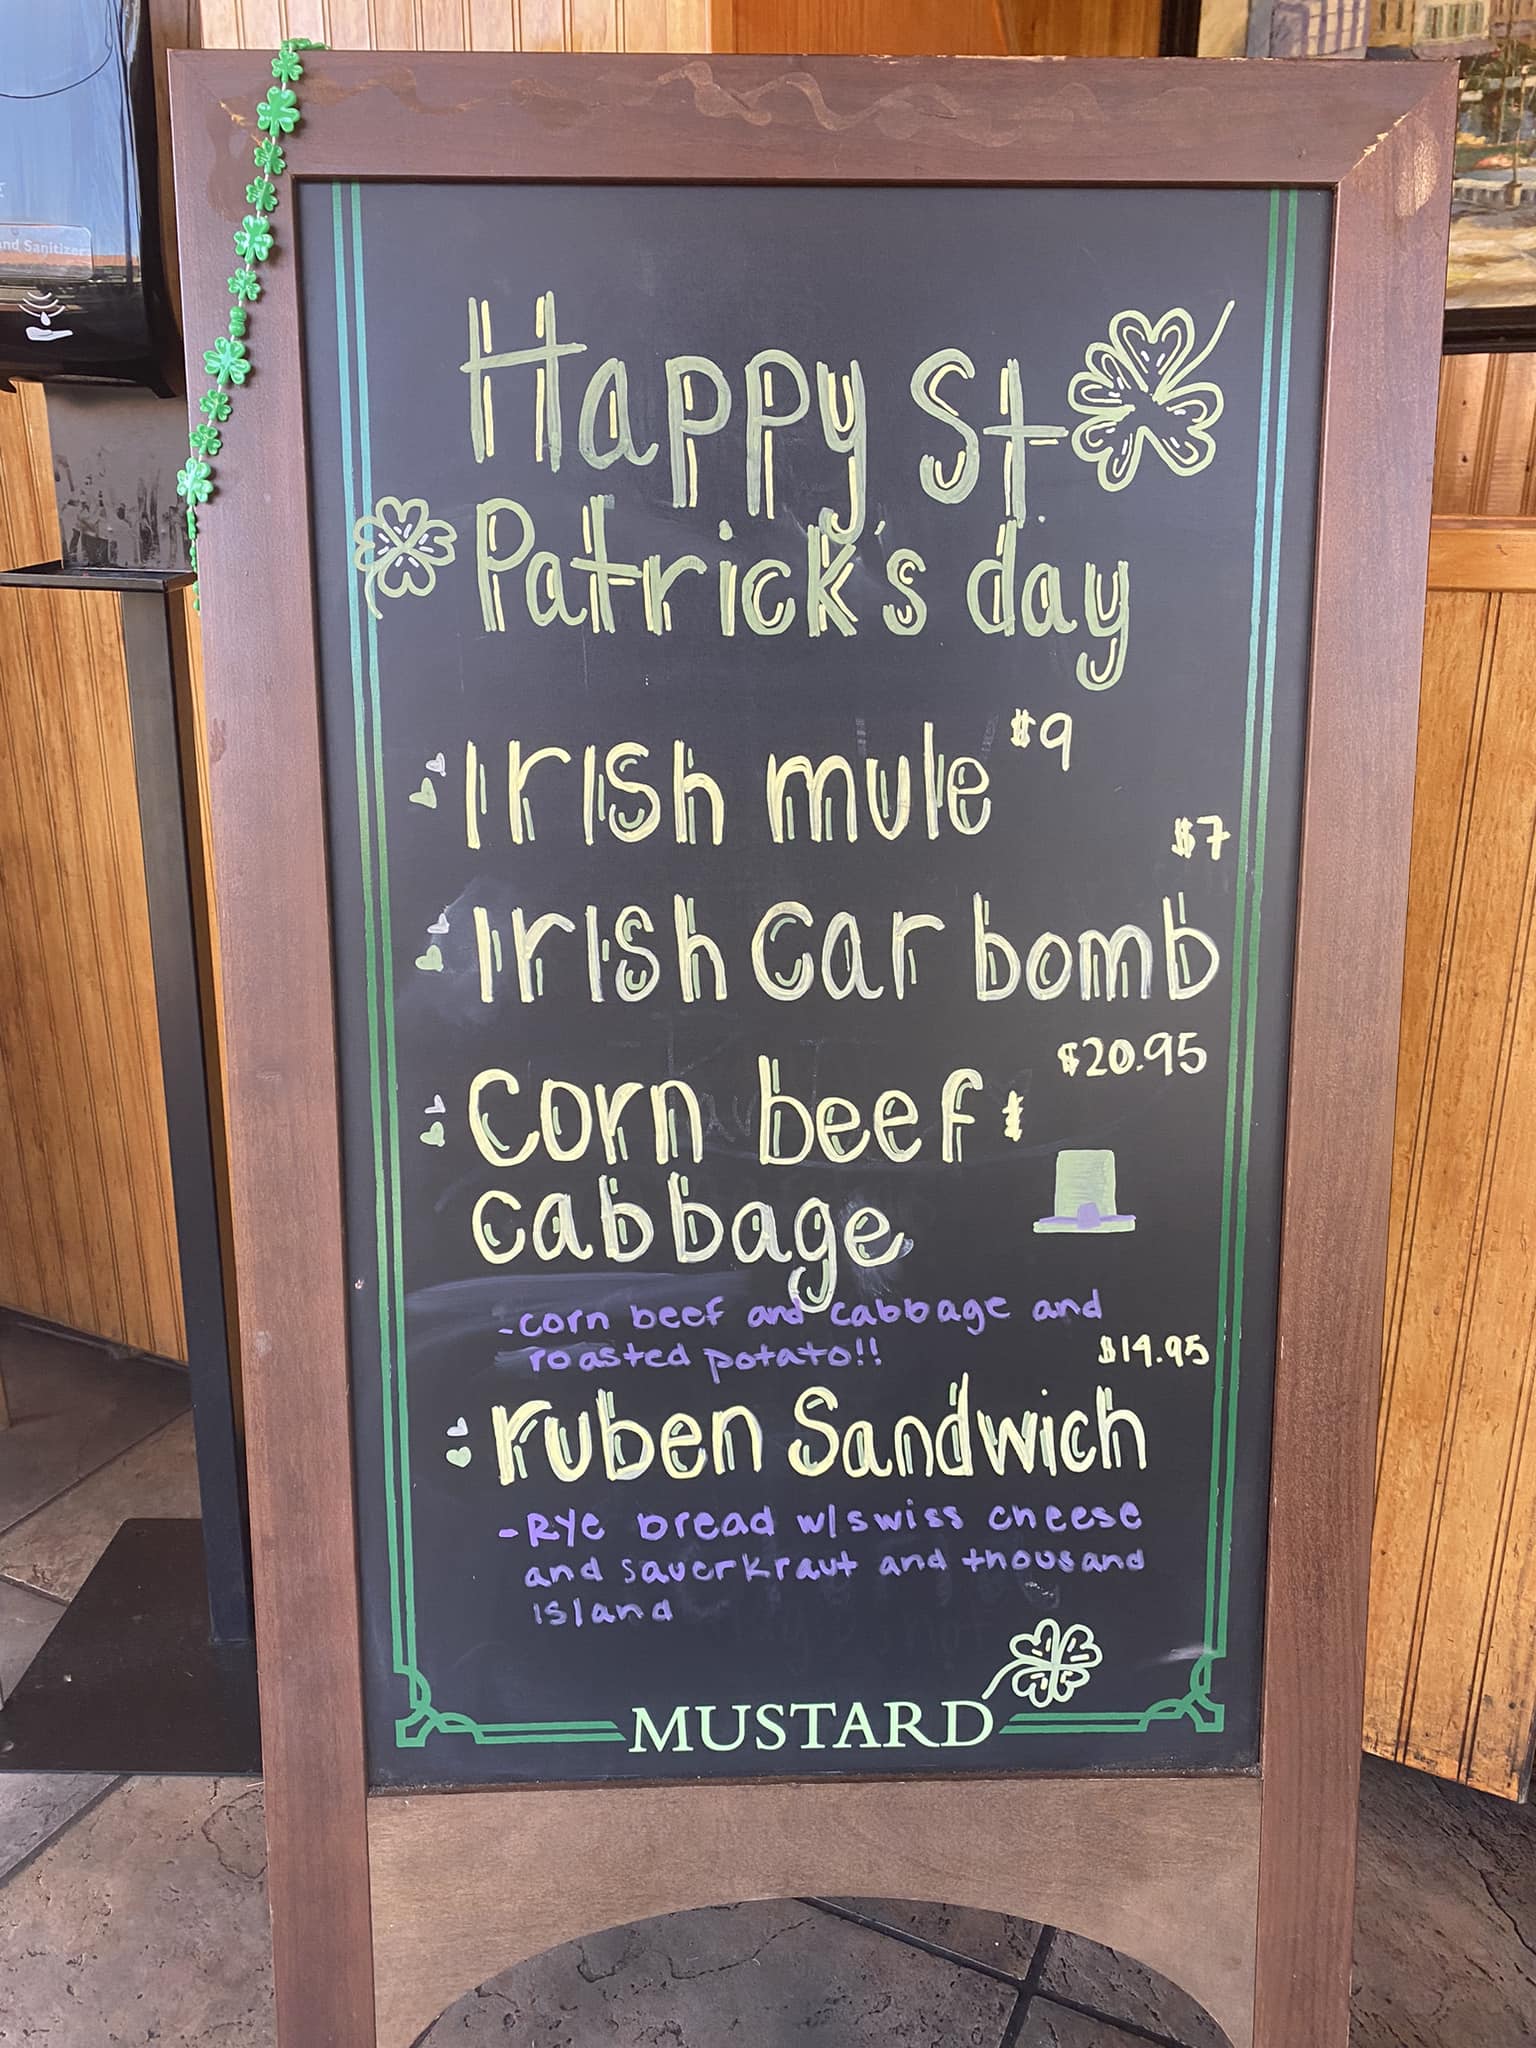 and Sanitizer
Happy St
Patrick's day
Irish mule $9
$7
Irish Car bomb
$20.95
Corn beef &
cabbage
-corn beef and cabbage and
roasted potato!!
$14.95
ruben Sandwich
-Rye bread w/swiss cheese
and sauerkraut and thousand
island
MUSTARD